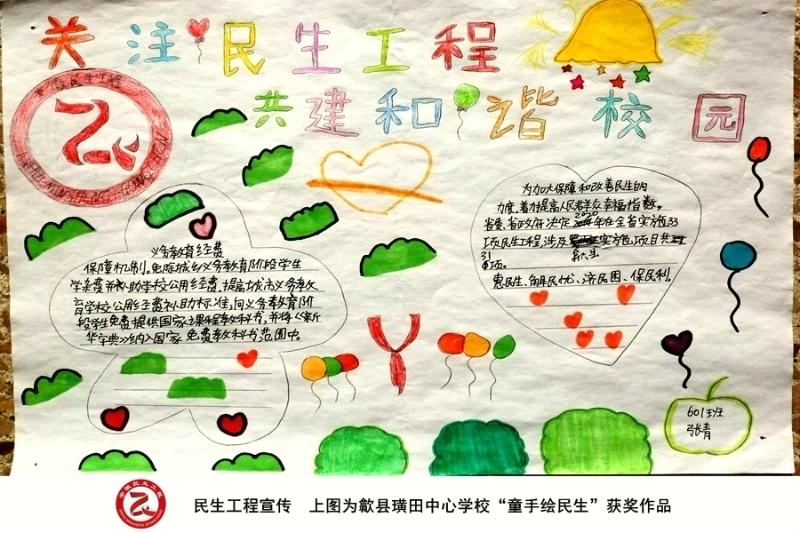 关注民生工程
共建和谐校园
安徽民生工程
义务教育经费
保障机制。免除城乡义务教育阶段学生
学杂费并补助学校公用经费。提高城市义务教
育学校公用经费补助标准,向义务教育阶
段学生免费提供国家课程教科书,并将《新
华字典》纳入国家免费教科书范围中。
为加大保障和改善民生的
力度,着力提高人民群众幸福指数。
省委、省政府决定2020年在全省实施33
项民生工程,涉及实施项目共
31项。
惠民生、解民忧、济民困、保民利。
601班
张青
安徽民生工程
民生工程宣传 上图为歙县璜田中心学校“童手绘民生”获奖作品